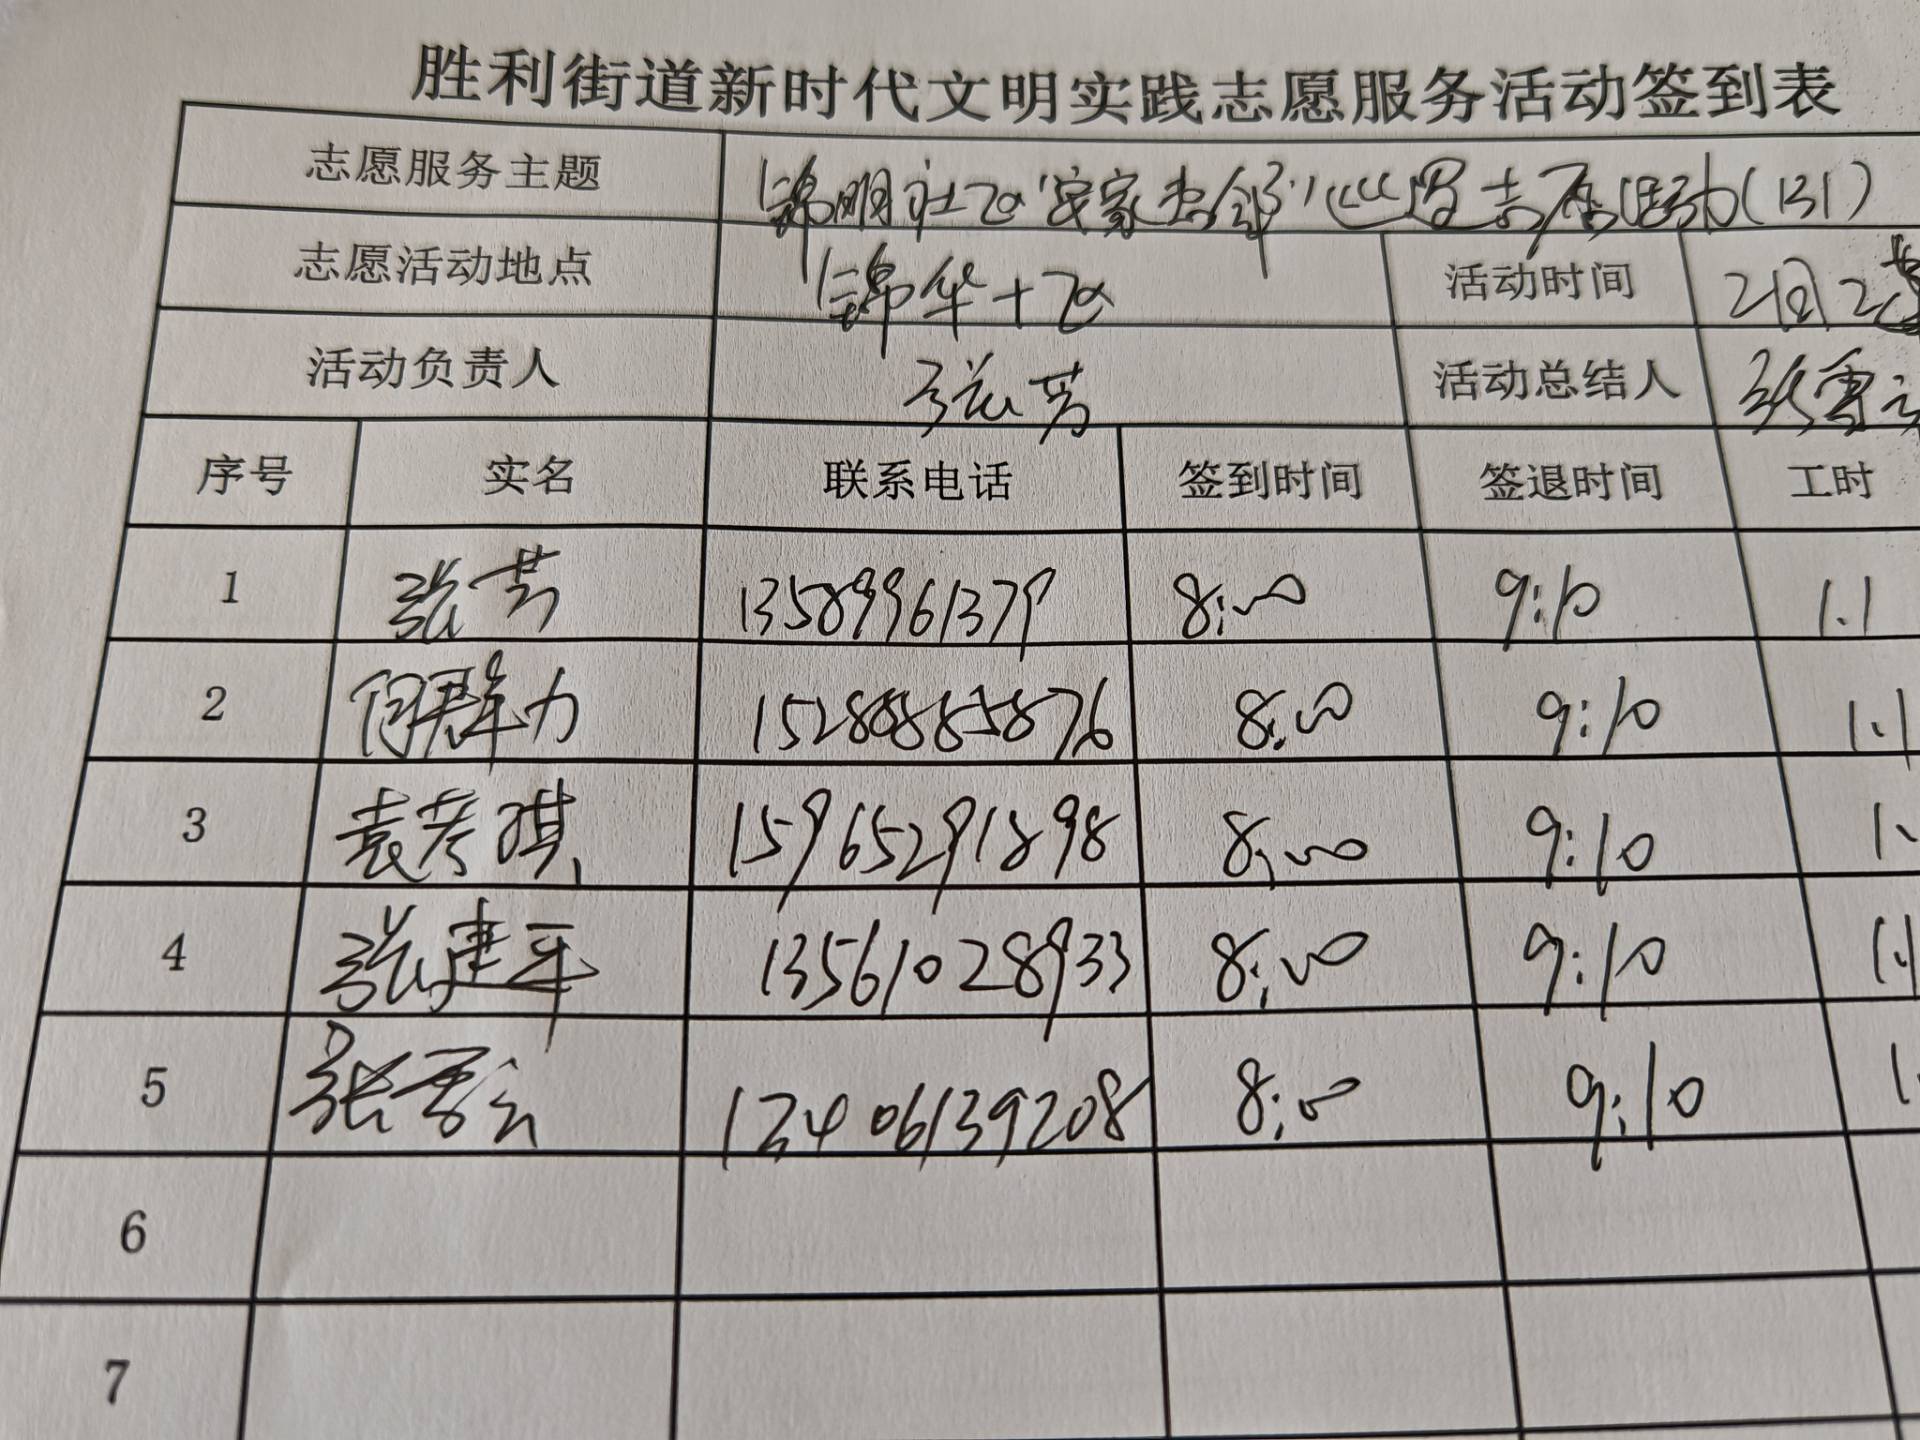 胜利街道新时代文明实践志愿服务活动签到表
志愿服务主题 锦明社区"安家 邻"心 志愿活动(131)
志愿活动地点 锦华十区 活动时间 2月2
活动负责人 张芳 活动总结人 张雪云
序号 实名 联系电话 签到时间 签退时间 工时
1 张芳 13589961379 8:00 9:10 1.1
2 何群力 15288885876 8:00 9:10 1.1
3 袁孝琪 15965291898 8:00 9:10 1.
4 张建平 13561028933 8:00 9:10 1.1
5 张雪云 12406139208 8:00 9:10 1.
6
7